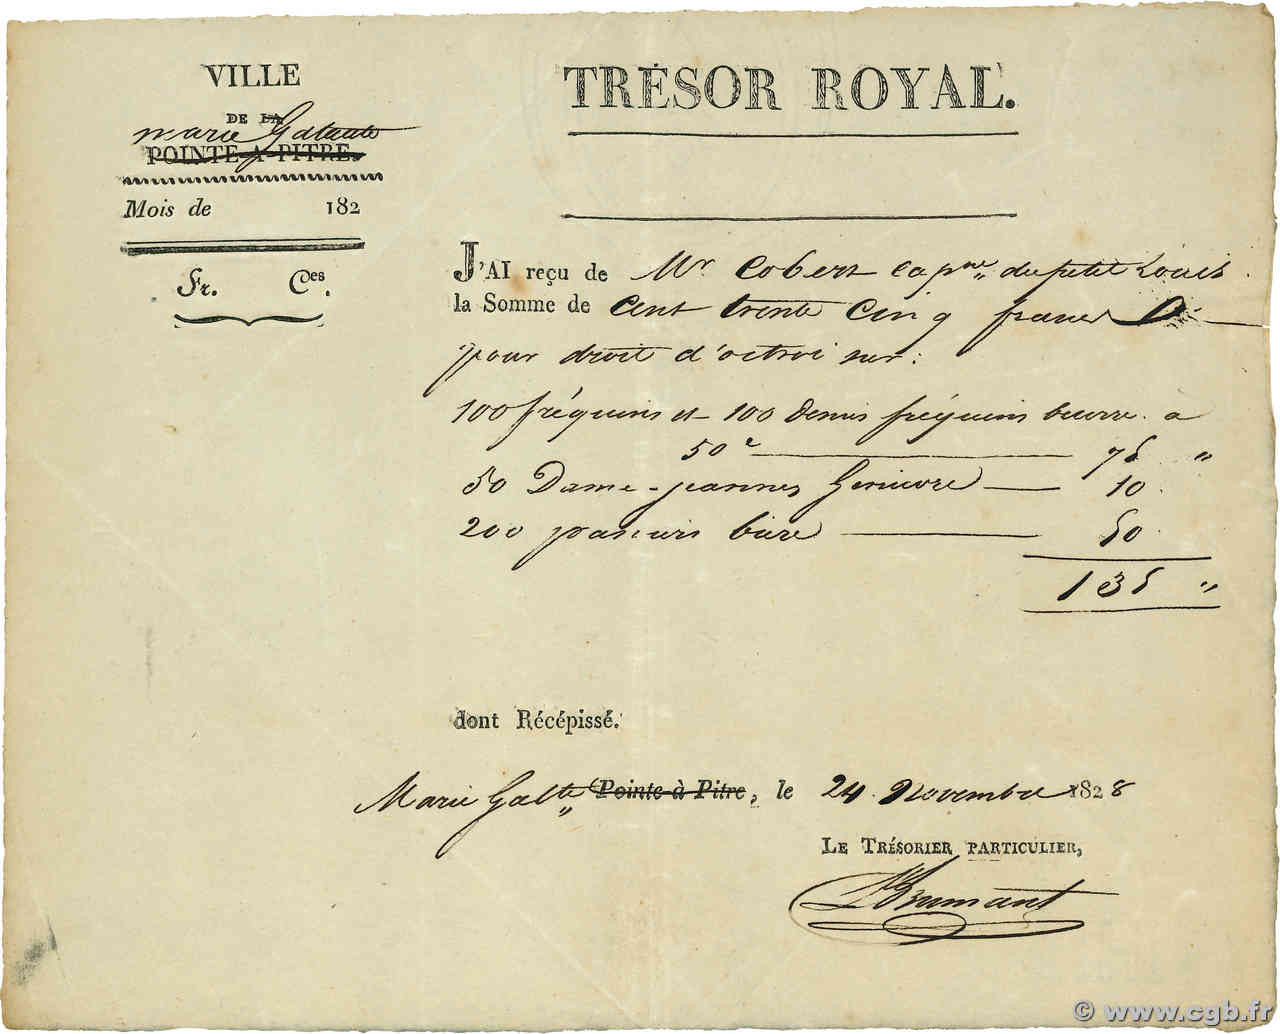 VILLE
DE LA
marie Galante
POINTE-A-PITRE.
Mois de 182
Fr. Ces.
TRÉSOR ROYAL.
J'AI reçu de Mr Cobert capne du petit Louis
la Somme de Cent trente Cinq francs
pour droit d'octroi sur:
100 fréquins et 100 demis fréquins beurre a
50c 75 "
50 Dame-jeannes Genievre 10
200 paniers bière 50
135 "
dont Récépissé.
Marie Galte Pointe-à-Pitre, le 24 Novembre 1828
LE TRÉSORIER PARTICULIER,
© www.cgb.fr